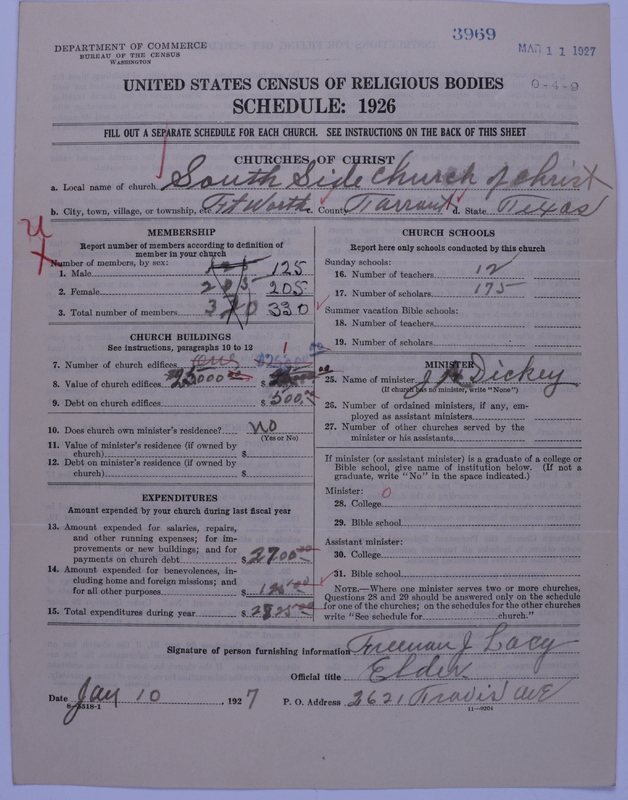 3969
DEPARTMENT OF COMMERCE
BUREAU OF THE CENSUS
WASHINGTON
MAR 11 1927
0-4-9
UNITED STATES CENSUS OF RELIGIOUS BODIES
SCHEDULE: 1926
FILL OUT A SEPARATE SCHEDULE FOR EACH CHURCH. SEE INSTRUCTIONS ON THE BACK OF THIS SHEET
CHURCHES OF CHRIST
a. Local name of church South Side Church of Christ
b. City, town, village, or township, etc. Ft Worth c. County Tarrant d. State Texas
MEMBERSHIP
Report number of members according to definition of
member in your church
Number of members, by sex:
1. Male 125
2. Female 205 205
3. Total number of members 330
CHURCH BUILDINGS
See instructions, paragraphs 10 to 12
7. Number of church edifices one 1
8. Value of church edifices 25000 $
9. Debt on church edifices $ 500
10. Does church own minister's residence? NO
(Yes or No)
11. Value of minister's residence (if owned by
church) $
12. Debt on minister's residence (if owned by
church) $
EXPENDITURES
Amount expended by your church during last fiscal year
13. Amount expended for salaries, repairs,
and other running expenses; for im-
provements or new buildings; and for
payments on church debt $ 2700.00
14. Amount expended for benevolences, in-
cluding home and foreign missions; and
for all other purposes $ 125.00
15. Total expenditures during year $ 2825.00
CHURCH SCHOOLS
Report here only schools conducted by this church
Sunday schools:
16. Number of teachers 12
17. Number of scholars 175
Summer vacation Bible schools:
18. Number of teachers
19. Number of scholars
MINISTER
25. Name of minister J H Dickey
(If church has no minister, write "None")
26. Number of ordained ministers, if any, em-
ployed as assistant ministers
27. Number of other churches served by the
minister or his assistants
If minister (or assistant minister) is a graduate of a college or
Bible school, give name of institution below. (If not a
graduate, write "No" in the space indicated.)
Minister: 0
28. College
29. Bible school
Assistant minister:
30. College
31. Bible school
NOTE.—Where one minister serves two or more churches,
Questions 28 and 29 should be answered only on the schedule
for one of the churches; on the schedules for the other churches
write "See schedule for church."
Signature of person furnishing information Freeman J Lacy
Official title Elder
Date Jan 10, 1927 P. O. Address 2621 Travis ave
8-5518-1
11-9204